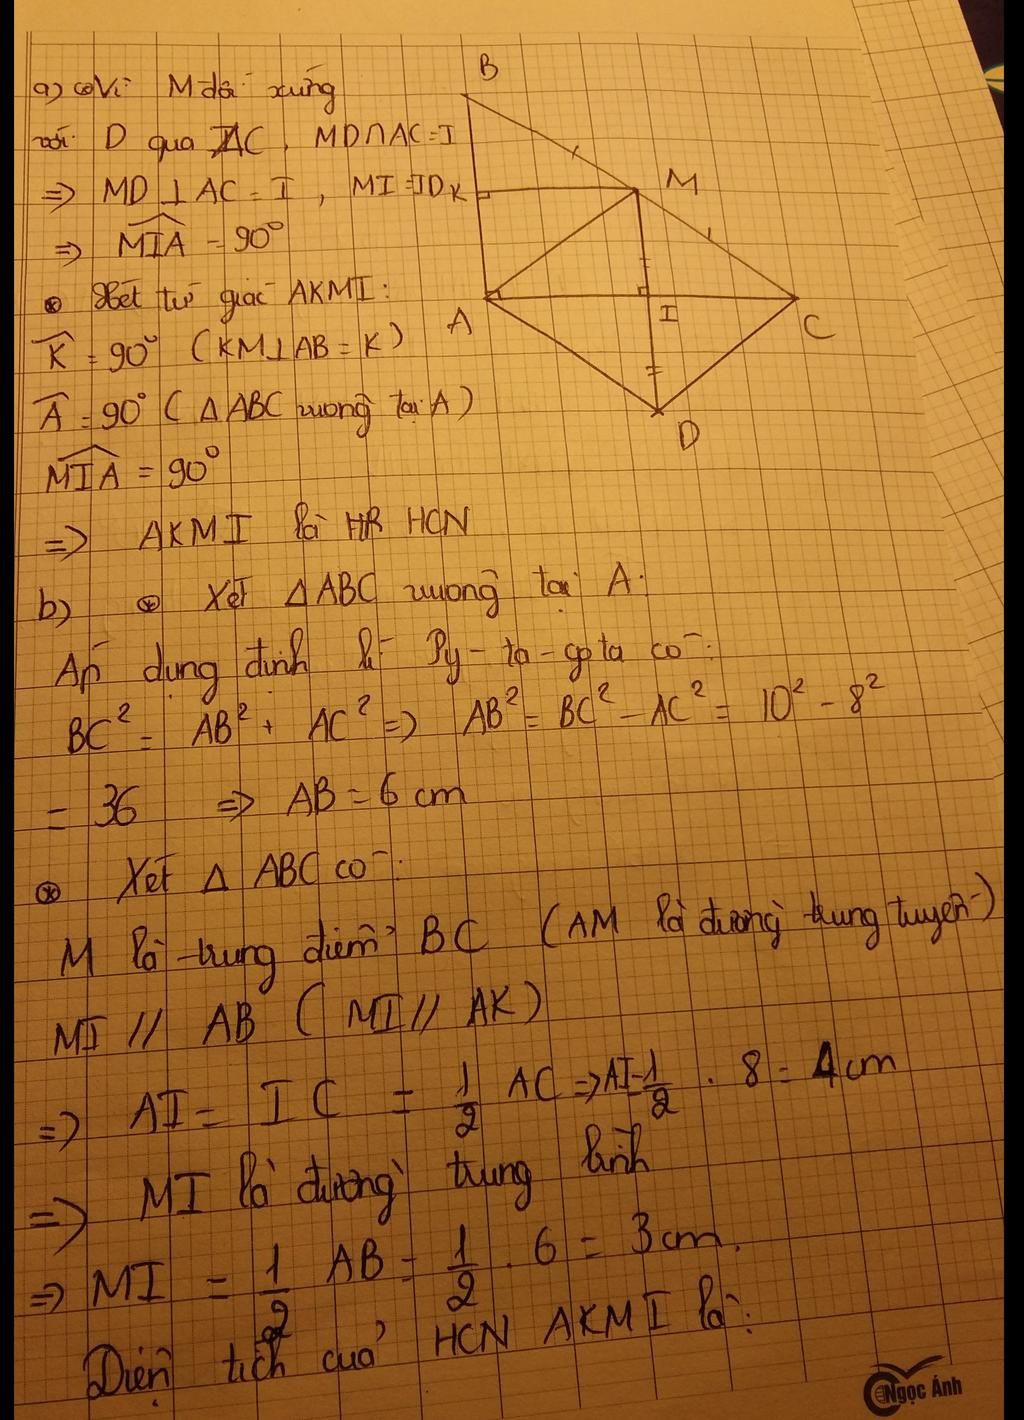 a) Vì M đối xứng
với D qua AC, MD∩AC=I
=> MD⊥AC=I, MI=ID
=> MIA = 90°
Xét tứ giác AKMI:
K = 90° (KM⊥AB=K)
A = 90° (ΔABC vuông tại A)
MIA = 90°
=> AKMI là HR HCN
b) Xét ΔABC vuông tại A:
Áp dụng định lí Py-ta-go ta có:
BC² = AB² + AC² => AB² = BC² - AC² = 10² - 8²
= 36 => AB = 6 cm
Xét Δ ABC có:
M là trung điểm BC (AM là đường trung tuyến)
MI // AB (MI // AK)
=> AI = IC = 1/2 AC => AI = 1/2 . 8 = 4cm
=> MI là đường trung bình
=> MI = 1/2 AB = 1/2 . 6 = 3cm.
Diện tích của HCN AKMI là:
B
M
K
A
I
C
D
Ngọc Ánh